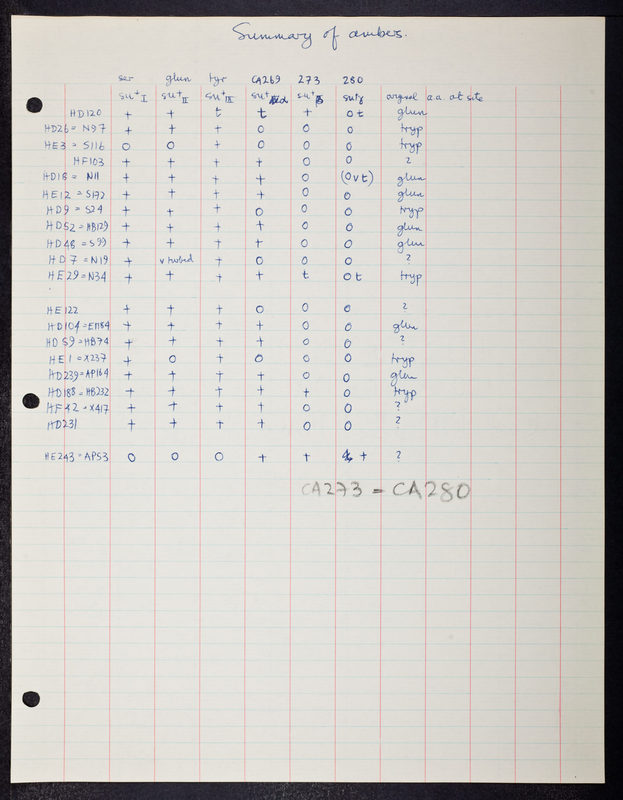 Summary of ambers.
ser glun tyr CA269 273 280
su⁺I su⁺II su⁺III su⁺ su⁺ su⁺ original a.a. at site
HD120 + + t t + O t glun
HD26 = N97 + + + O O O tryp
HE3 = S116 O O + O O O tryp
HF103 + + + + O O ?
HD18 = N11 + + + + O (O v t) glun
HE12 = S172 + + + + O O glun
HD9 = S24 + + + O O O tryp
HD52 = HB129 + + + + O O glun
HD48 = S99 + + + + O O glun
HD7 = N19 + + O O O ?
HE29 = N34 + + + + t O t tryp
HE122 + + + O O O ?
HD104 = EM84 + + + + O O glun
HD59 = HB74 + + + + O O ?
HE1 = X237 + O + O O O tryp
HD239 = AP164 + + + + O O glun
HD188 = HB232 + + + + + O tryp
HF42 = X417 + + + + O O ?
HD231 + + + + O O ?
HE243 = AP53 O O O + + + ?
CA273 = CA280